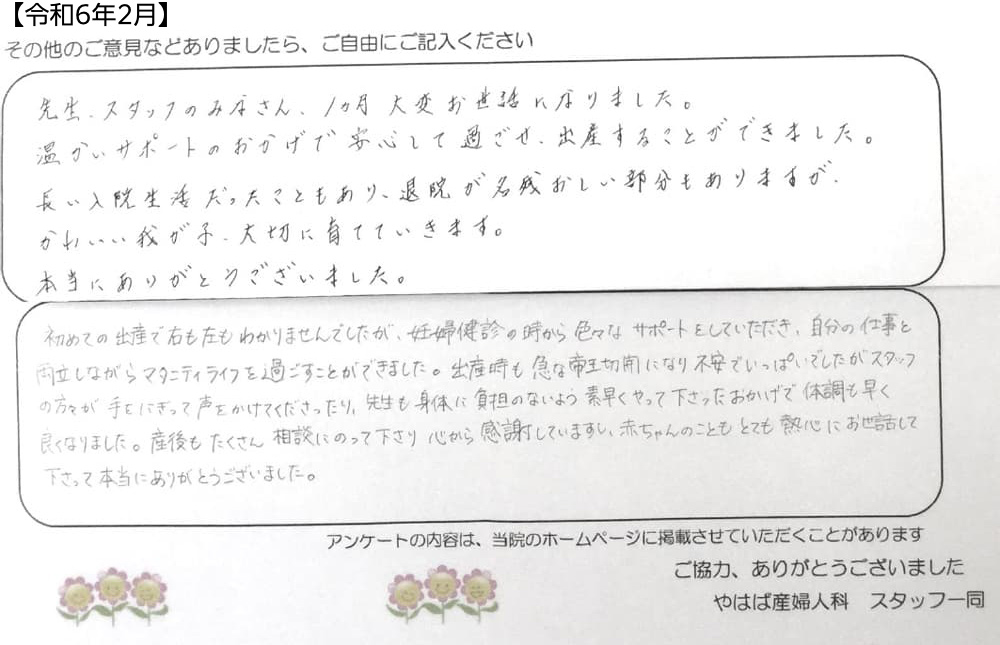 【令和6年2月】
その他のご意見などありましたら、ご自由にご記入ください
先生、スタッフのみなさん、1ヵ月 大変お世話になりました。
温かいサポートのおかげで安心して過ごせ、出産することができました。
長い入院生活だったこともあり、退院が名残おしい部分もありますが、
かわいい我が子、大切に育てていきます。
本当にありがとうございました。
初めての出産で右も左もわかりませんでしたが、妊婦健診の時から色々なサポートをしていただき、自分の仕事と
両立しながらマタニティライフを過ごすことができました。出産時も急な帝王切開になり不安でいっぱいでしたがスタッフ
の方々が手をにぎって声をかけてくださったり、先生も身体に負担のないよう素早くやって下さったおかげで体調も早く
良くなりました。産後もたくさん相談にのって下さり心から感謝していますし、赤ちゃんのこともとても熱心にお世話して
下さって本当にありがとうございました。
アンケートの内容は、当院のホームページに掲載させていただくことがあります
ご協力、ありがとうございました
やはば産婦人科 スタッフ一同